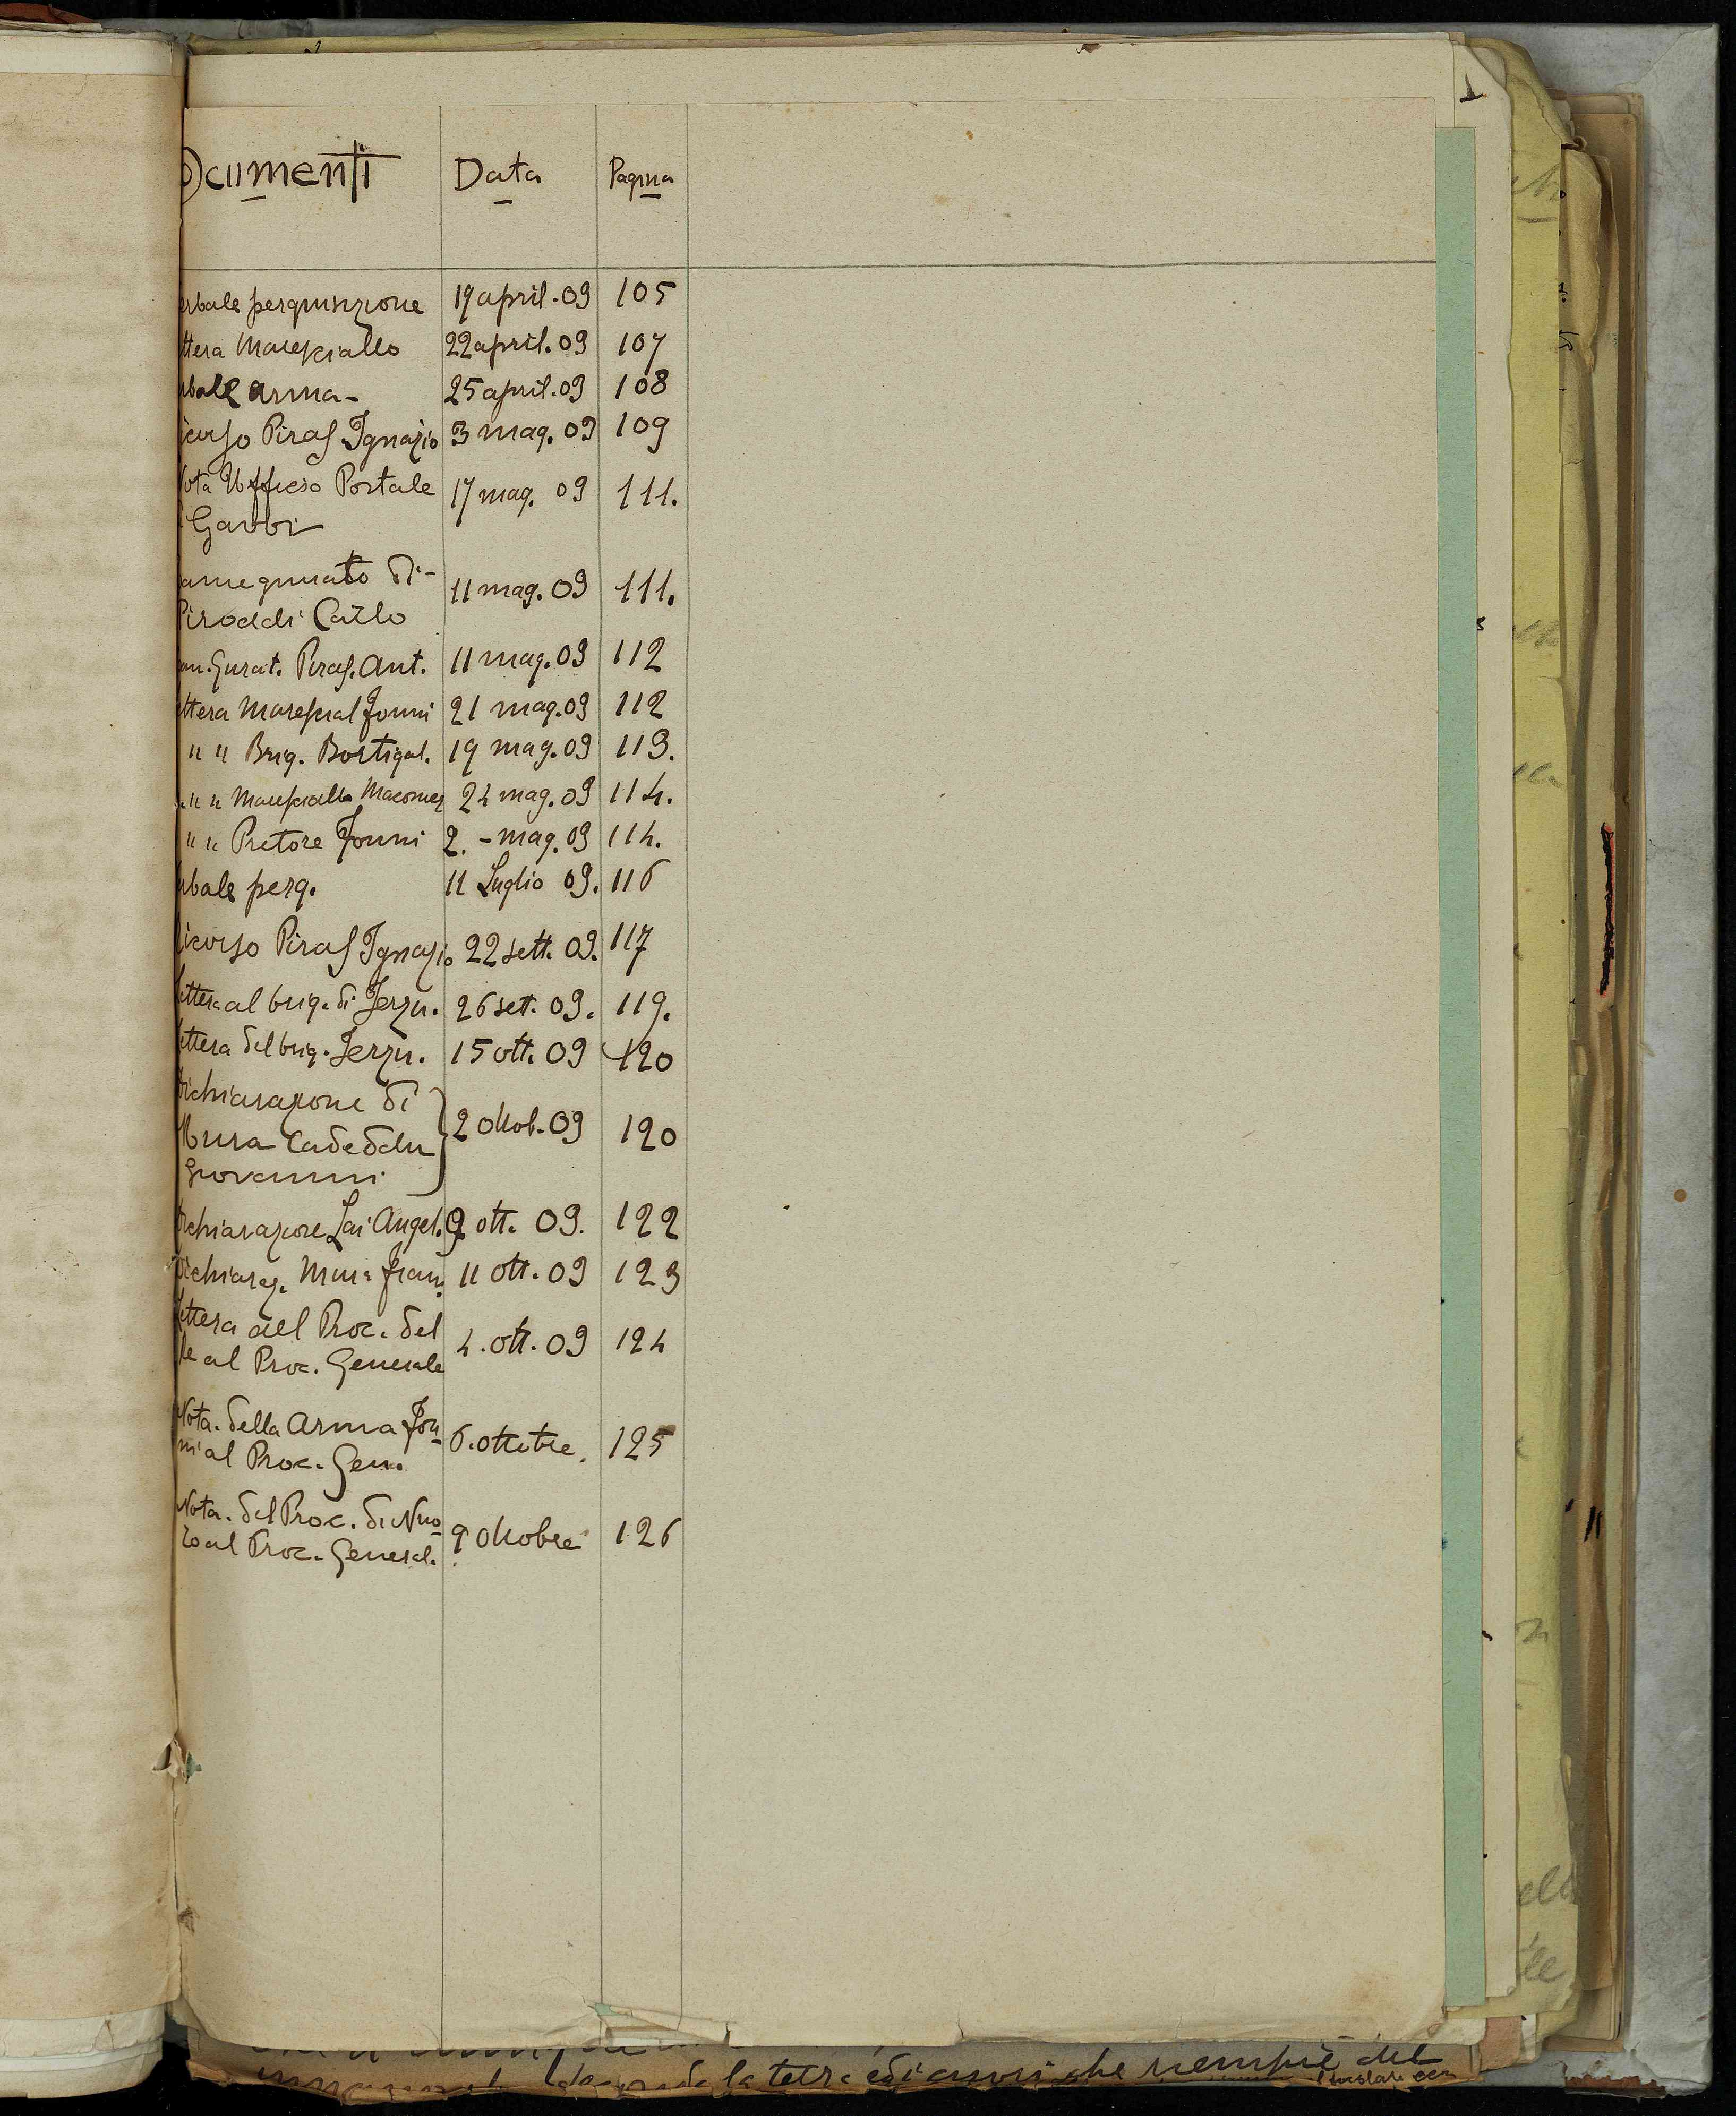 Documenti Data Pagina
erbale perquisizione 19 april. 09 105
ttera Maresciallo 22 april. 09 107
rbale arma - 25 april. 09 108
icorso Piras Ignazio 3 mag. 09 109
Nota Ufficio Postale 17 mag. 09 111.
Gavoi
di -
Piroddi Carlo 11 mag. 09 111.
Giurat. Piras. Ant. 11 mag. 09 112
ttera Marescial Fonni 21 mag. 09 112
" " Brig. Bortigal. 19 mag. 09 113.
" " Maresciallo Macomer 24 mag. 09 114.
" " Pretore Fonni 2. - mag. 09 114.
rbale perq. 11 Luglio 09. 116
icorso Piras Ignazio 22 sett. 09. 117
ettera al brig. di Jerzu. 26 sett. 09. 119.
ettera del brig. Jerzu. 15 ott. 09 120
ichiarazione di
Mura Cadeddu 2 ottob. 09 120
Giovanni
ichiarazione Lai Angel. 9 ott. 09. 122
Dichiaraz. Mura Fran. 11 ott. 09 123
ettera del Proc. del
Re al Proc. Generale 4. ott. 09 124
Nota. della Arma Fon
ni al Proc. Gen. 6. ottobre. 125
Nota. del Proc. di Nuo
ro al Proc. General. 9 ottobre 126
che riempie del